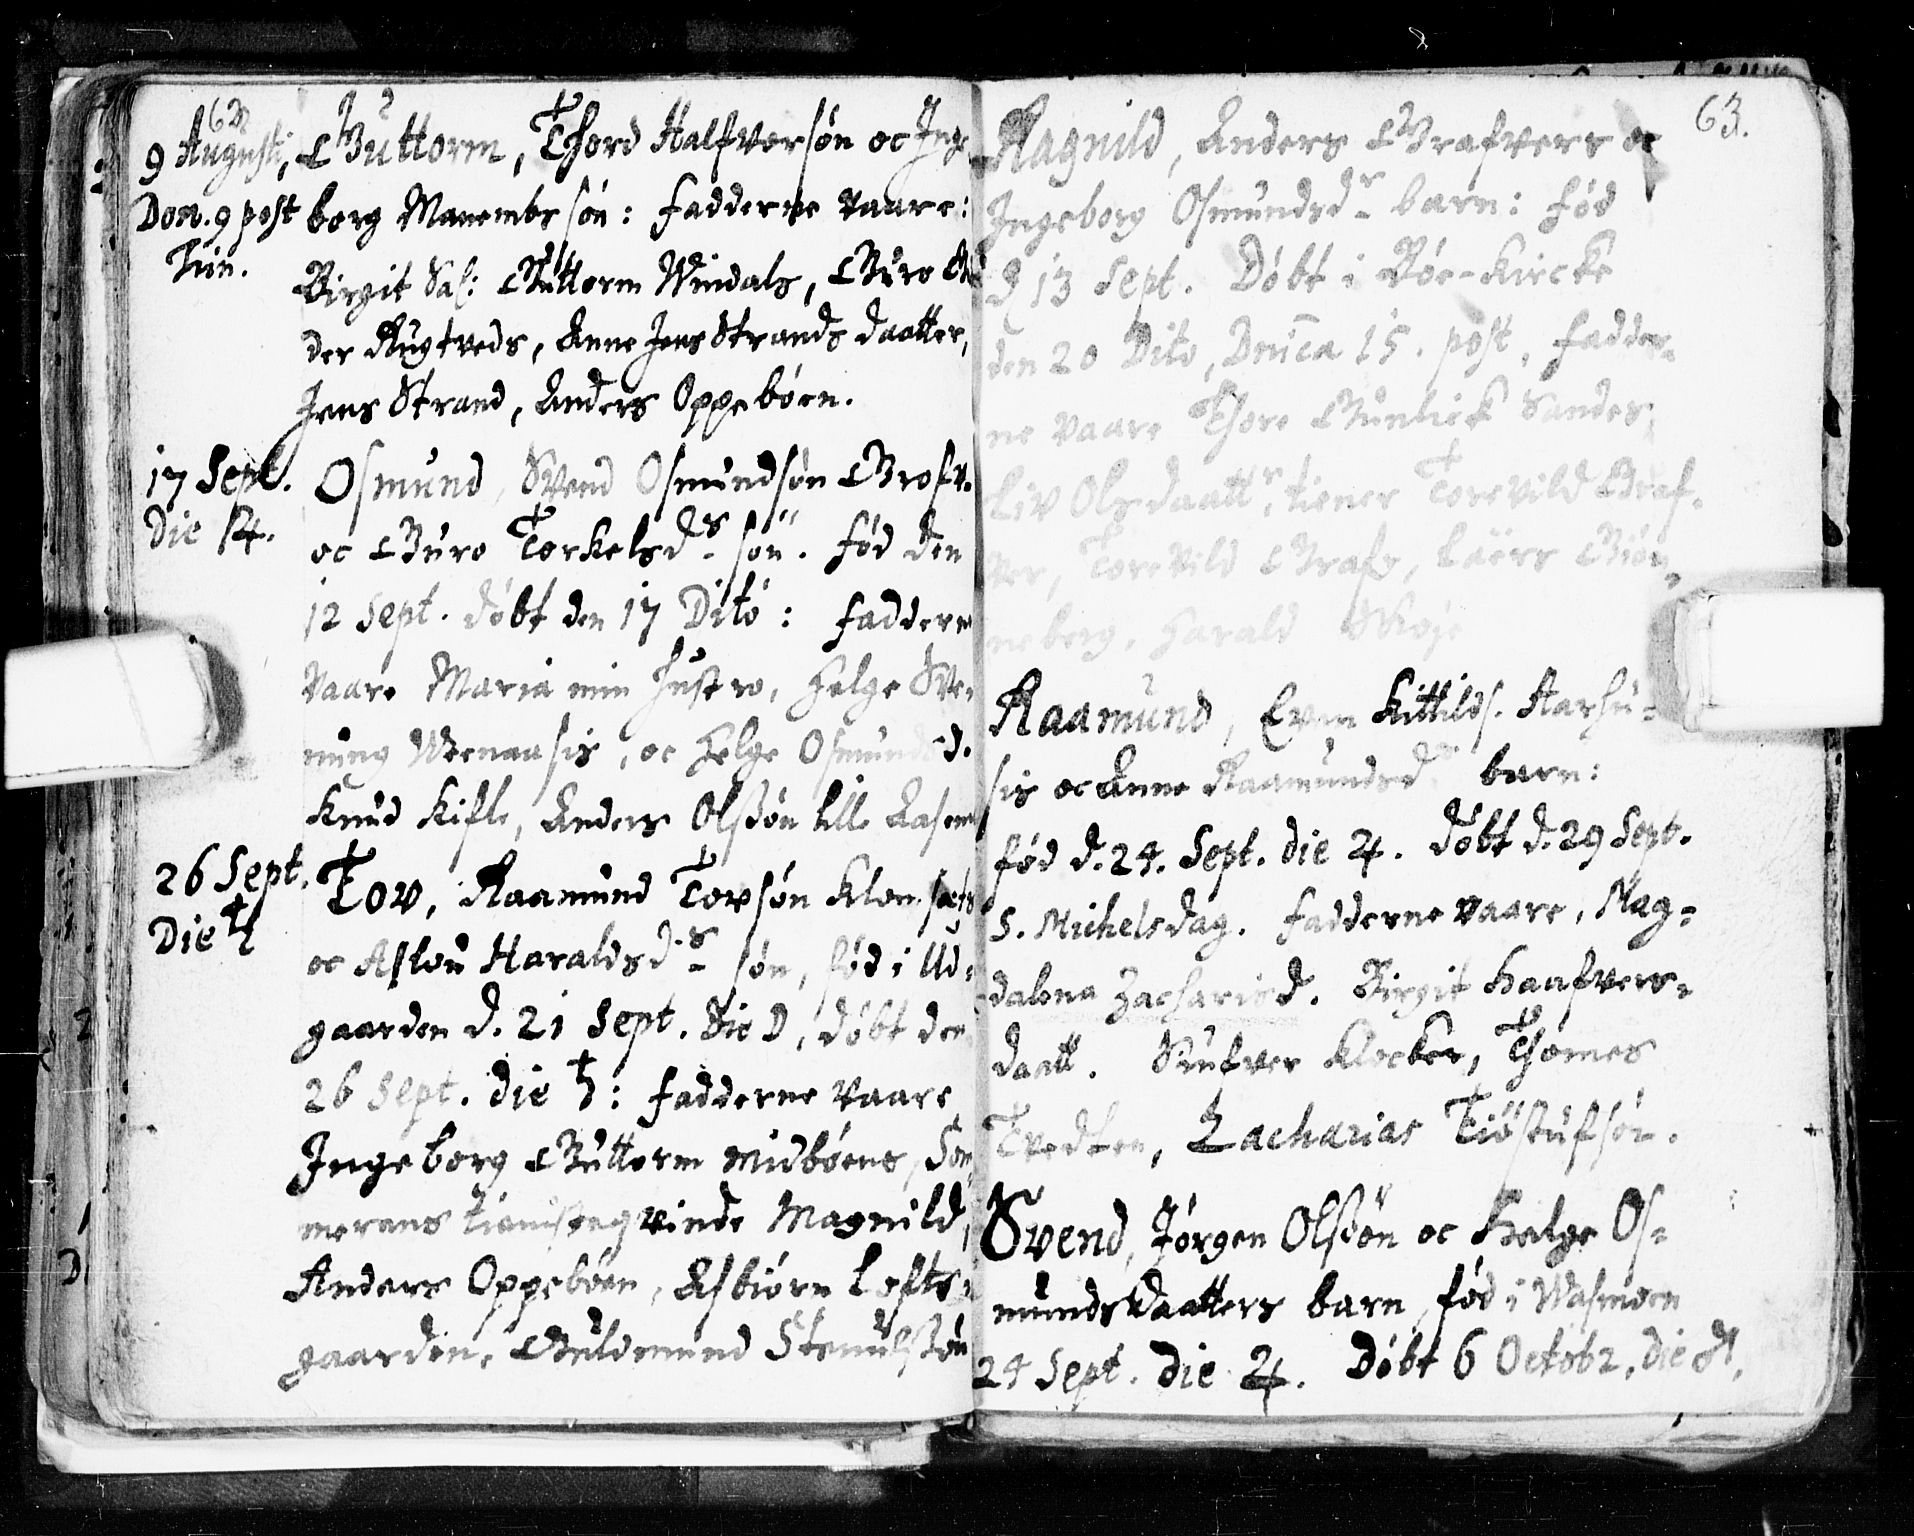 62
9 Augusti,
Dom. 9 post
Trin.
Guttorm, Thord Halfvorsøn oc Inge
borg Manembr søn: fadderne vaare:
Birgit Sal: Guttorm Windals, Guro An
der Rugtveds, Anne Jens Strands daatter,
Jens Strand, Anders Oppebøen.
17 Sept.
Die ♃.
Osmund, Svend Osmundsøn Grofv.
oc Guro Torkelsd.s søn. fød den
12 Sept. døbt den 17 Dito: faddern
vaare Maria min hustro, Helge Sve-
nung oc Helge Osmundsd.
Knud Kifle, Anders Olssøn lille Aasen
26 Sept.
Die ♄
Tov, Raamund Tovsøn
oc Aslou Haraldsd.s søn, fød i Ud-
gaarden d. 21 Sept. die ☽, døbt den
26 Sept. die ♄: fadderne vaare
Ingeborg Guttorm Midbøens, Som
merens tienisteqvinde Magnild,
Anders Oppebøen, Asbiørn Lofts-
gaarden, Guldmund Stenulssøn
63.
Ragnild, Anders Grafvers oc
Ingeborg Osmundsd.r barn: fød
d 13 Sept. Døbt i Bøe-Kircke
den 20 Dito, Dnica 15. post, fadder-
ne vaare Thore Gunlick Sandes,
Liv Olsdaattr, tiener Torevild Graf-
ver, Torevild Grafv, Laers Biør-
neberg, Harald
Raamund, Even Kittilds. Aarhu-
sis oc Anne Raamundsd.r barn:
fød d. 24. Sept. die ♃. døbt d. 29 Sept.
S. Michelsdag. fadderne vaare, Mag-
dalena Zacharisd. Birgit Haafvers-
daatt. Klocker, Thomes
Tvedten, Zacharias Tiøstufsøn.
Svend, Jørgen Olssøn oc Helge Os-
mundsdaatters barn, fød i
24 Sept. die ♃. Døbt 6 Octobr. die ♂.